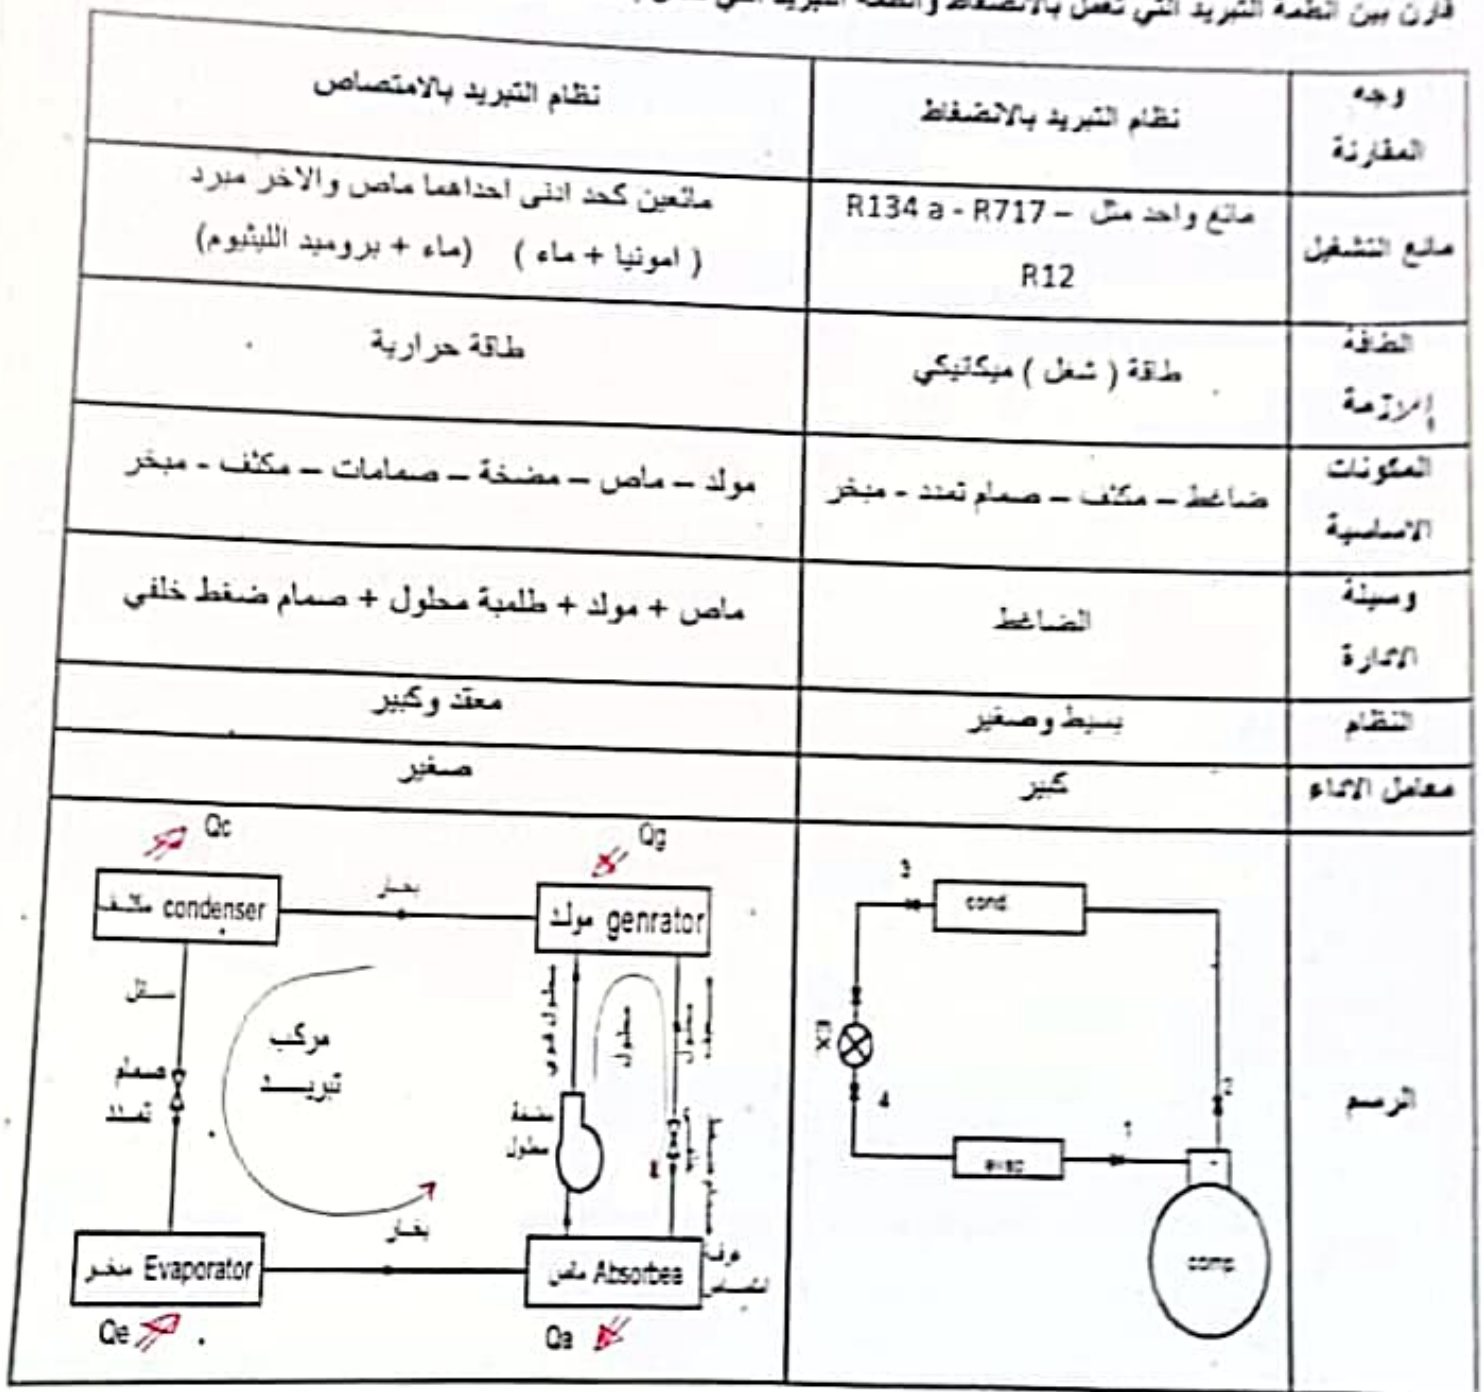 قارن بين انظمة التبريد التي تعمل بالانضغاط وانظمة التبريد التي
وجه المقارنة
نظام التبريد بالانضغاط
نظام التبريد بالامتصاص
مائع التشغيل
مائع واحد مثل – R134 a - R717
R12
مائعين كحد ادنى احداهما ماص والاخر مبرد
( امونيا + ماء ) (ماء + بروميد الليثيوم)
الطاقة
اللازمة
طاقة ( شغل ) ميكانيكي
طاقة حرارية
المكونات
الاساسية
ضاغط – مكثف – صمام تمدد - مبخر
مولد – ماص – مضخة – صمامات – مكثف - مبخر
وسيلة
الادارة
الضاغط
ماص + مولد + طلمبة محلول + صمام ضغط خلفي
النظام
بسيط وصغير
معقد وكبير
معامل الاداء
كبير
صغير
الرسم
3
cond.
EX.
4
evap
1
2
comp.
Qc
Qg
مكثف condenser
بخار
مولد genrator
سائل
مركب
تبريد
صمام
تمدد
محلول قوي
محلول
محلول ضعيف
مضخة
محلول
بخار
مبخر Evaporator
ماص Absorbea
غرفة
امتصاص
Qe
Qa